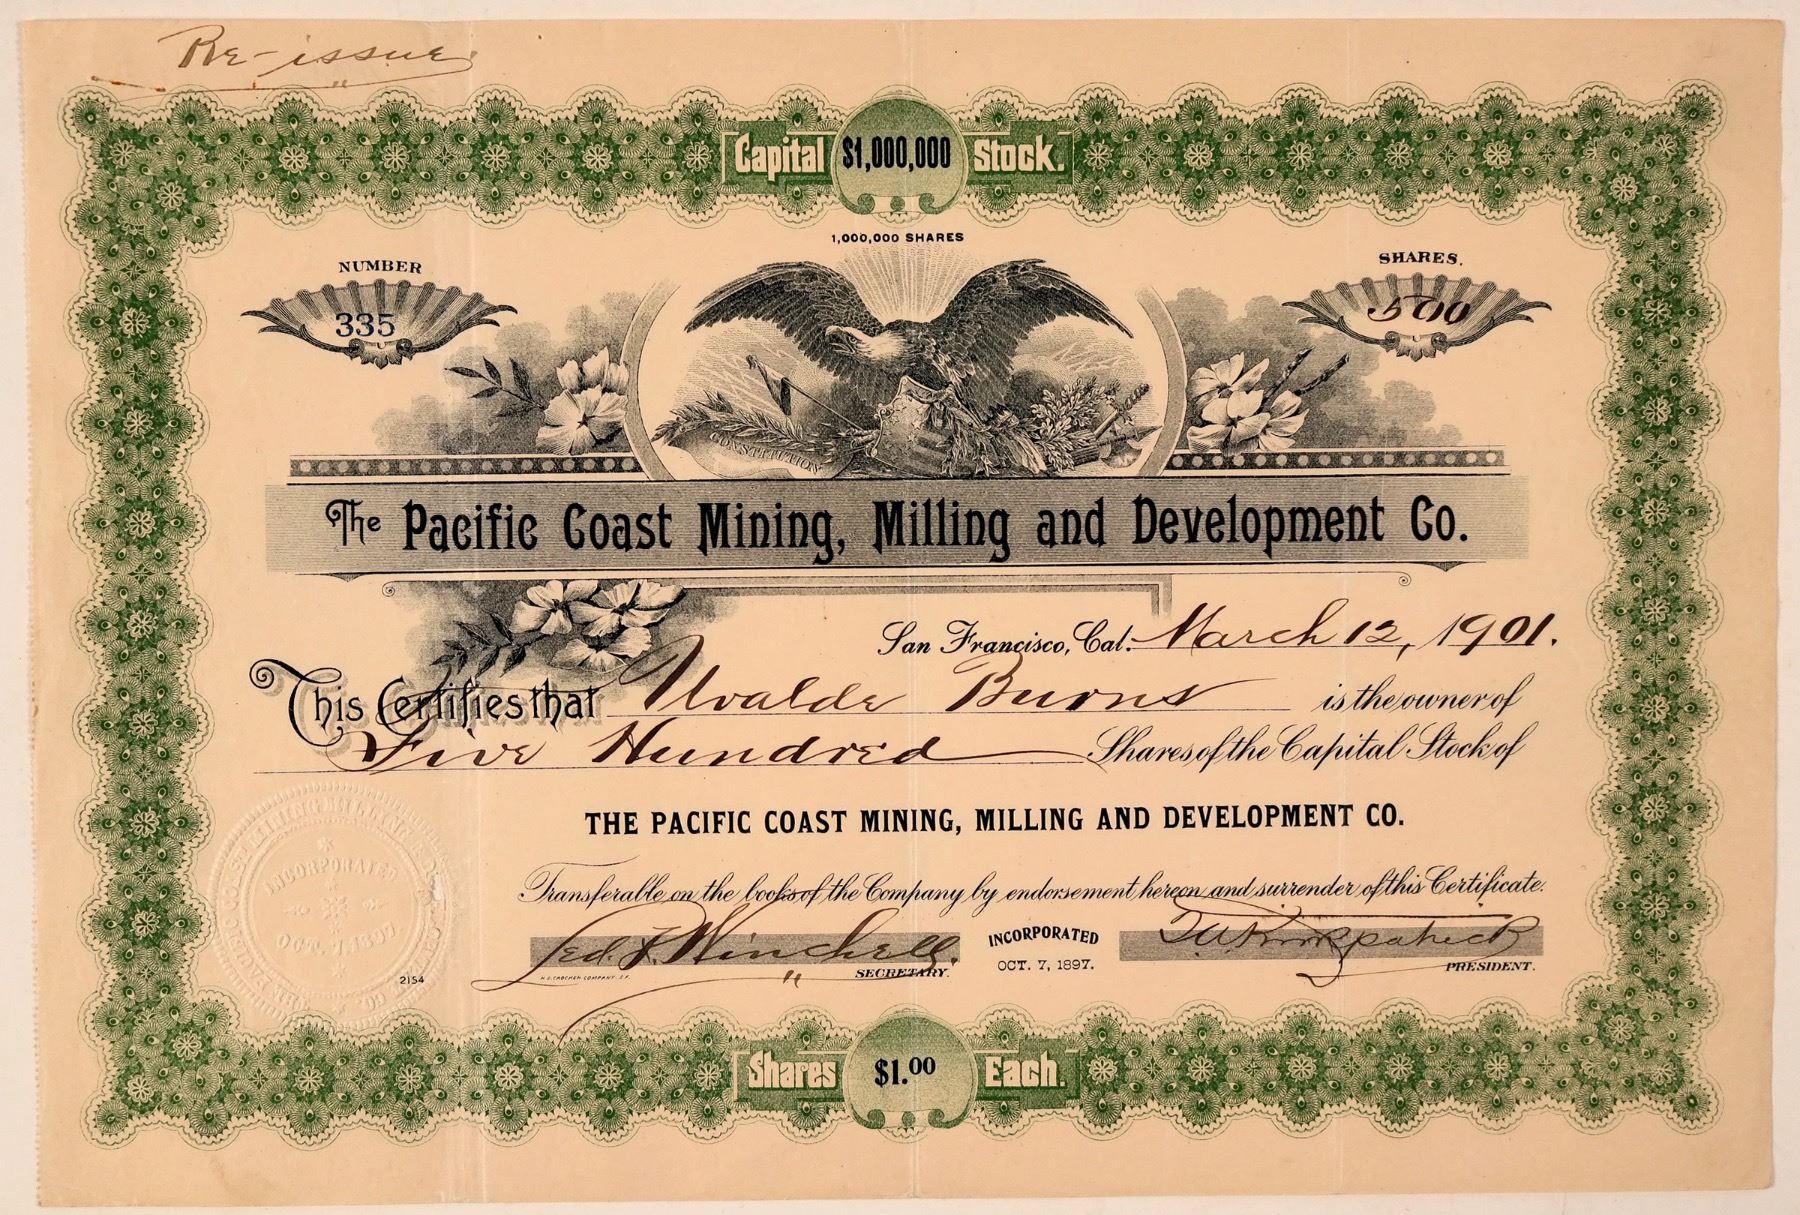 Re-issue
Capital $1,000,000 Stock.
1,000,000 SHARES
NUMBER
335
SHARES.
500
CONSTITUTION
The Pacific Coast Mining, Milling and Development Co.
San Francisco, Cal. March 12, 1901.
This Certifies that Uvalde Burns is the owner of
Five Hundred Shares of the Capital Stock of
THE PACIFIC COAST MINING, MILLING AND DEVELOPMENT CO.
Transferable on the books of the Company by endorsement hereon and surrender of this Certificate.
INCORPORATED
OCT. 7, 1897
2154
F. Winchell.
H.S. CROCKER COMPANY. S.F.
SECRETARY.
INCORPORATED
OCT. 7, 1897.
Kirkpatrick
PRESIDENT.
Shares $1.00 Each.